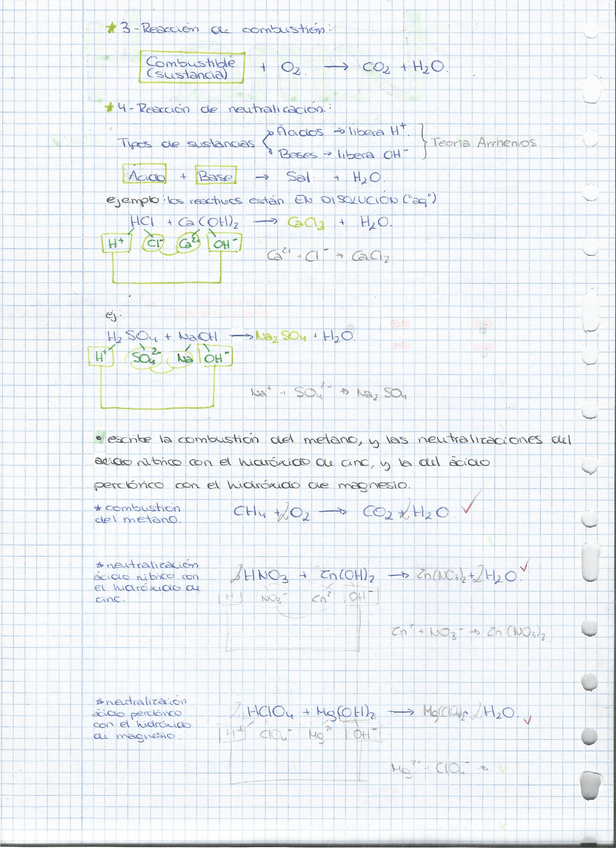 ★3-Reacción de combustión:
Combustible (sustancia) + O₂ → CO₂ + H₂O.
★4-Reacción de neutralización:
Tipos de sustancias
Acidos → libera H⁺
Bases → libera OH⁻
Teoría Arrhenios
Acido + Base → Sal + H₂O.
ejemplo: los reactivos están EN DISOLUCIÓN ("aq")
HCl + Ca(OH)₂ → CaCl₂ + H₂O.
H⁺ Cl⁻ Ca²⁺ OH⁻
Ca²⁺ + Cl⁻ → CaCl₂
ej:
H₂SO₄ + NaOH → Na₂SO₄ + H₂O
H⁺ SO₄²⁻ Na OH⁻
Na⁺ + SO₄²⁻ → Na₂SO₄
• escribe la combustión del metano, y las neutralizaciones del
ácido nítrico con el hidróxido de cinc, y la del ácido
perclórico con el hidróxido de magnesio.
* combustión
del metano.
CH₄ + 2O₂ → CO₂ + 2H₂O ✓
* neutralización
ácido nítrico con
el hidróxido de
cinc.
2HNO₃ + Zn(OH)₂ → Zn(NO₃)₂ + 2H₂O ✓
H NO₃⁻ Zn² OH⁻
Zn² + NO₃⁻ → Zn(NO₃)₂
* neutralización
ácido perclórico
con el hidróxido
de magnesio.
2HClO₄ + Mg(OH)₂ → Mg(ClO₄)₂ 2H₂O. ✓
H⁺ ClO₄⁻ Mg²⁺ OH⁻
Mg²⁺ + ClO₄⁻ →